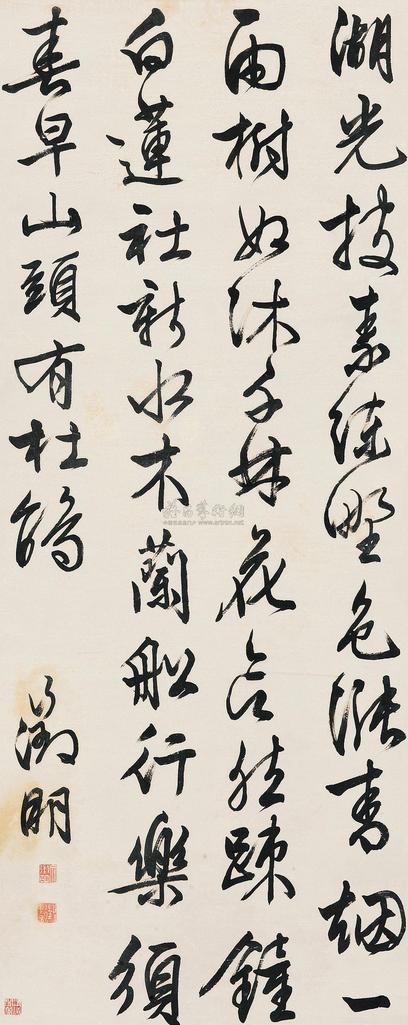 湖光披素練野色漲青烟一
雨樹如沐千林花欲然踈鐘
白蓮社新水木蘭船行樂須
春早山頭有杜鵑
徵明